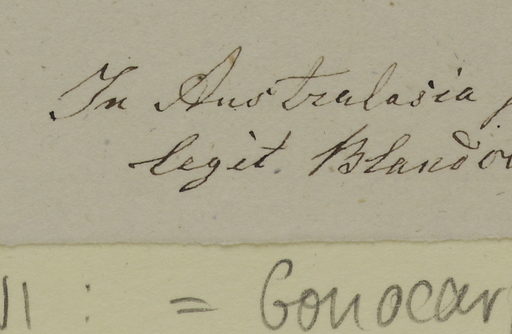 In Australasia
legit. Blando
: = Gonocar